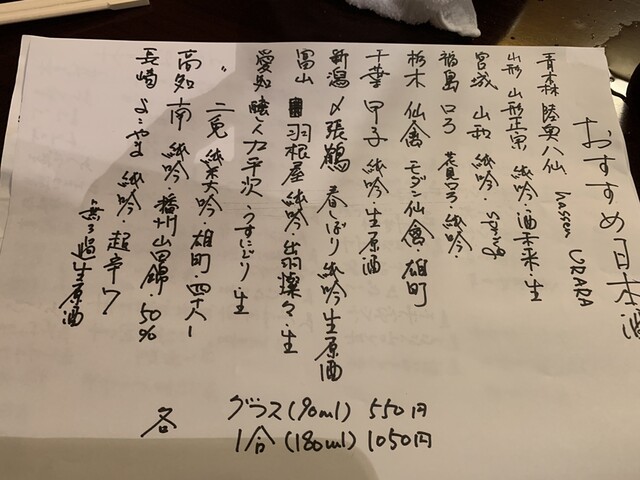 おすすめ日本酒
青森 陸奥八仙 hassen URARA
山形 山形正宗 純吟・酒未来・生
宮城 山和 純吟・Spring
福島 ロ万 花見ロ万・純吟
栃木 仙禽 モダン仙禽・雄町
千葉 甲子 純吟・生原酒
新潟 〆張鶴 春しぼり純吟生原酒
富山 羽根屋 純吟・出羽燦々・生
愛知 醸し人九平次 うすにごり・生
〃 二兎 純米大吟・雄町・四十八
高知 南 純吟・播州山田錦・50%
長崎 よこやま 純吟・超辛7
無ろ過生原酒
各 グラス(90ml) 550円
1合(180ml) 1050円